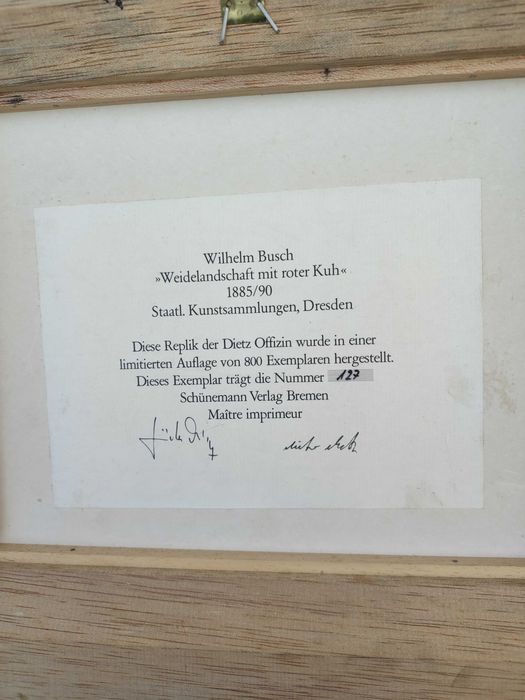 Wilhelm Busch
»Weidelandschaft mit roter Kuh«
1885/90
Staatl. Kunstsammlungen, Dresden
Diese Replik der Dietz Offizin wurde in einer
limitierten Auflage von 800 Exemplaren hergestellt.
Dieses Exemplar trägt die Nummer 127
Schünemann Verlag Bremen
Maître imprimeur